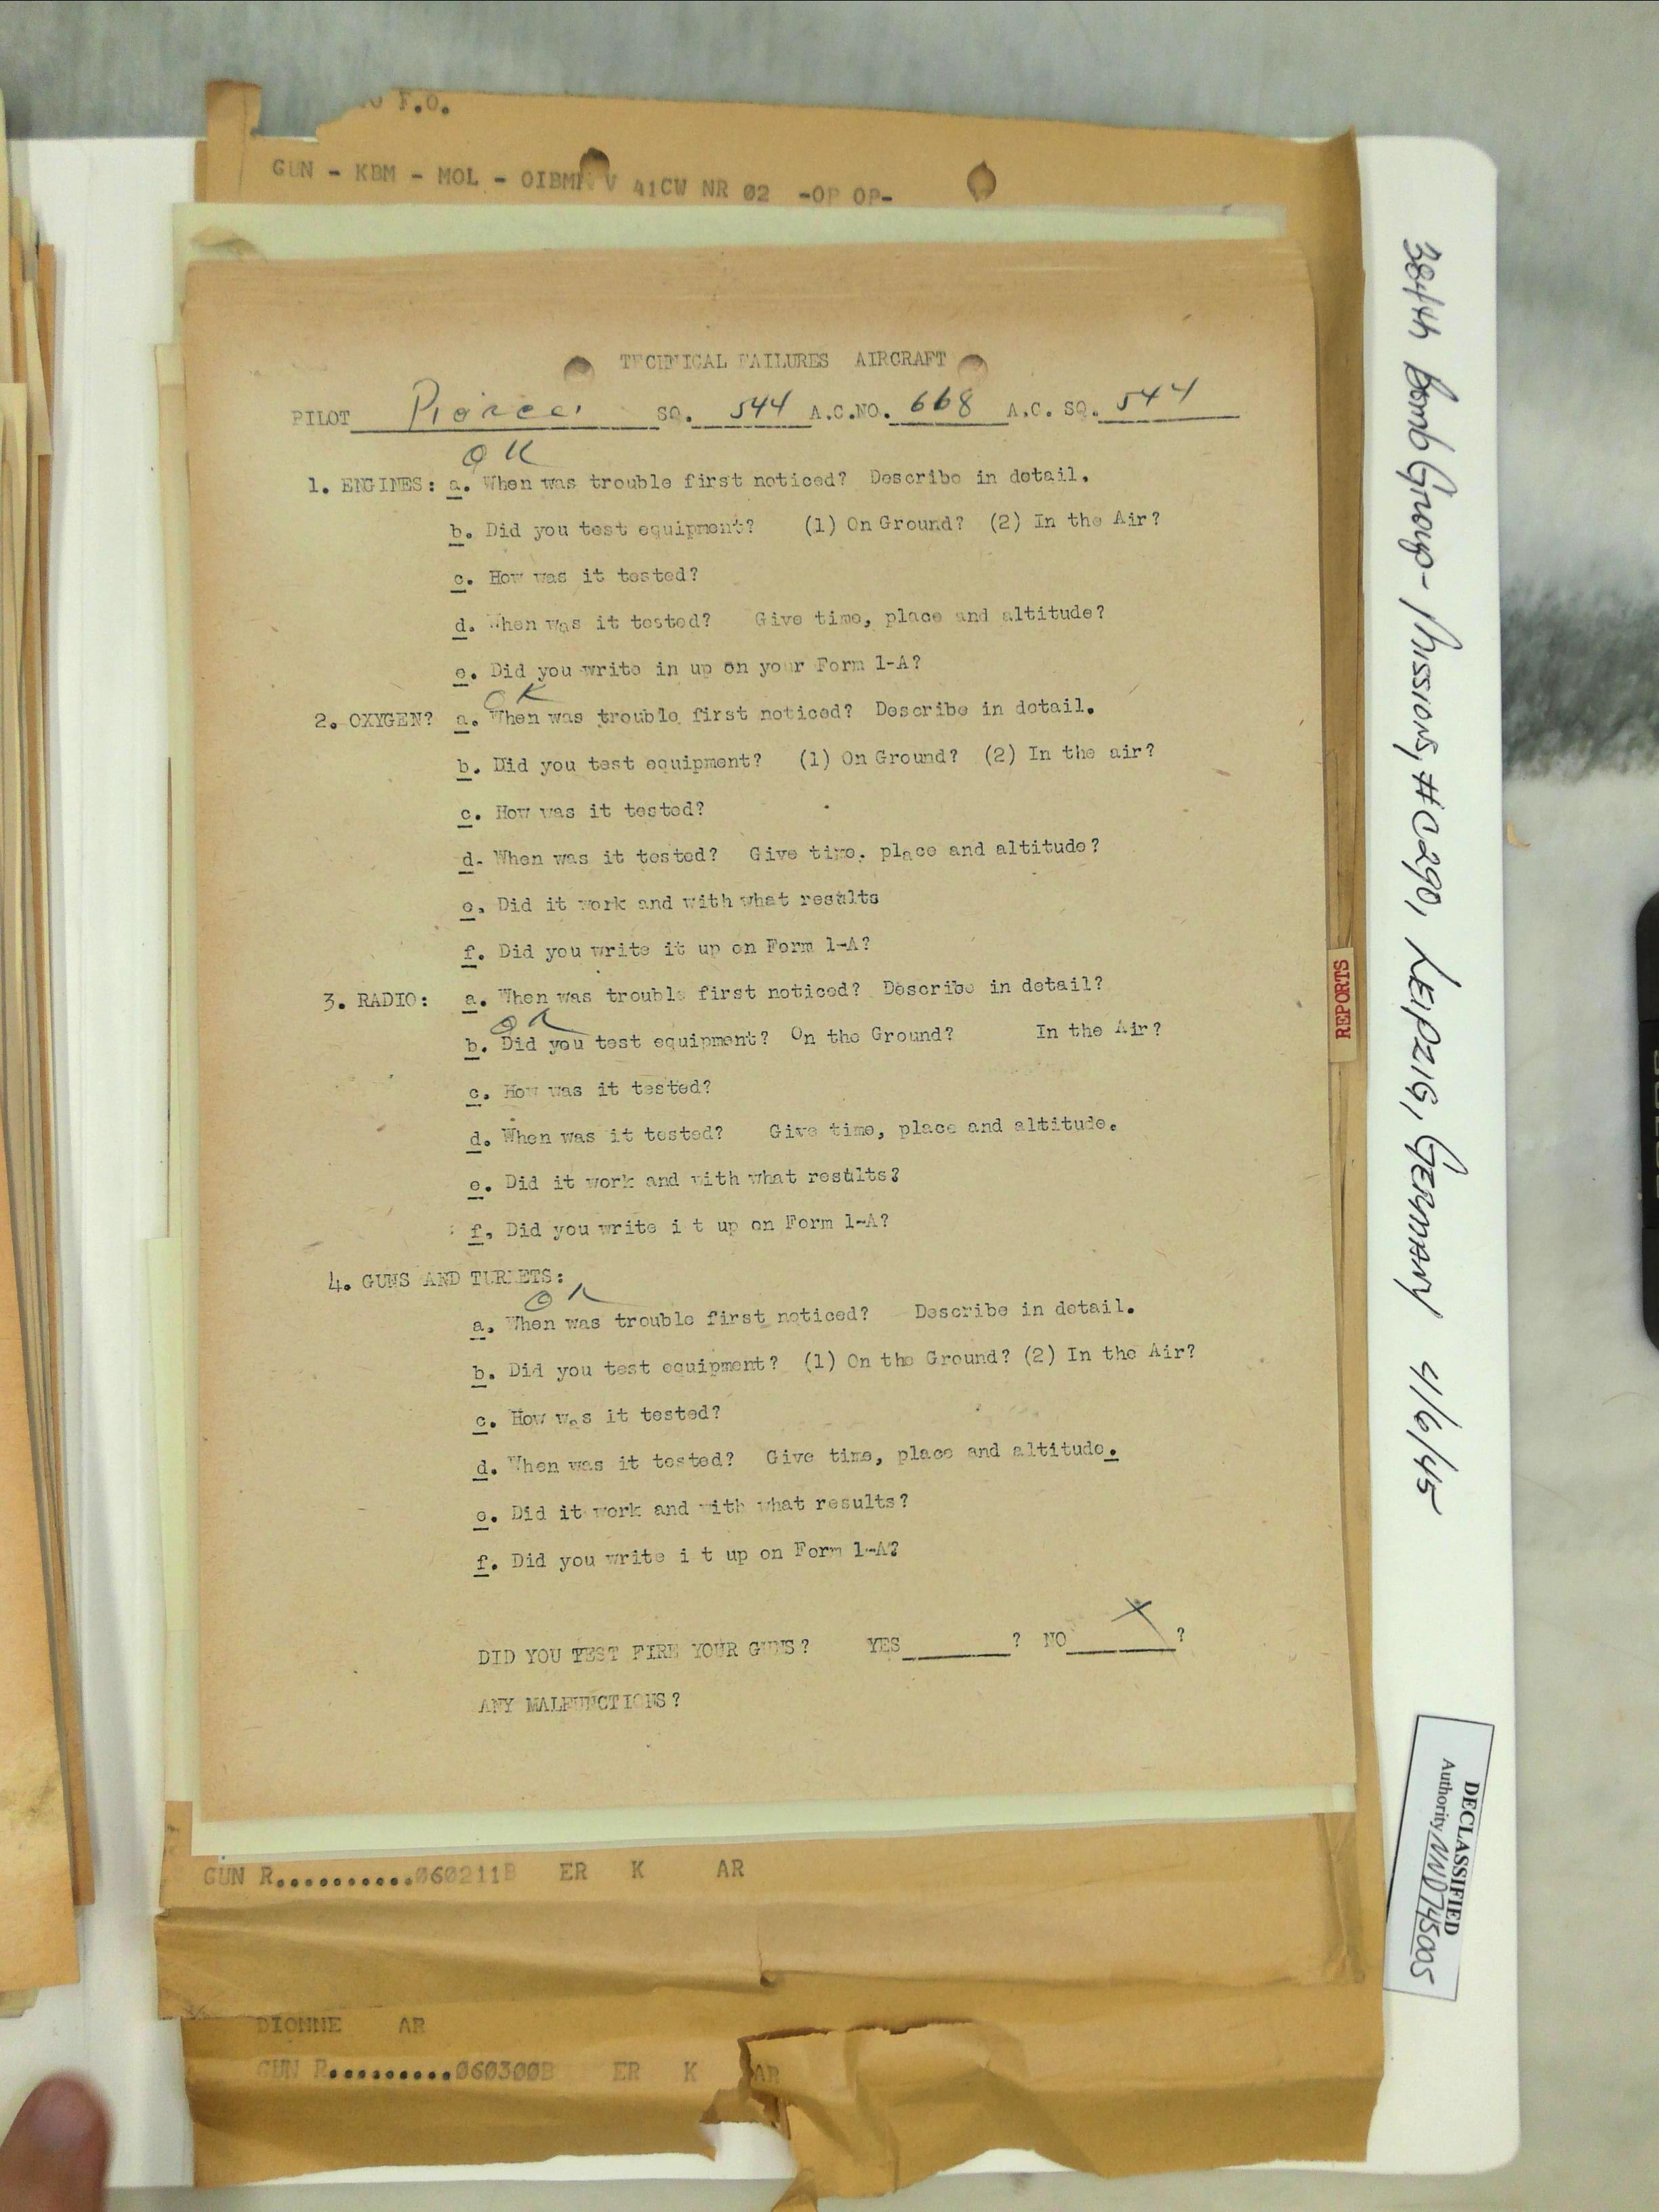 F.O.
GUN - KBM - MOL - OIBMR V 41CW NR 02 -OP OP-
TECHNICAL FAILURES AIRCRAFT
PILOT SQ. 544 A.C.NO. 668 A.C. SQ. 544
OK
1. ENGINES: a. When was trouble first noticed? Describe in detail.
b. Did you test equipment? (1) On Ground? (2) In the Air?
c. How was it tested?
d. When was it tested? Give time, place and altitude?
e. Did you write in up on your Form 1-A?
OK
2. OXYGEN? a. When was trouble first noticed? Describe in detail.
b. Did you test equipment? (1) On Ground? (2) In the air?
c. How was it tested?
d. When was it tested? Give time. place and altitude?
e. Did it work and with what results
f. Did you write it up on Form 1-A?
3. RADIO: a. When was trouble first noticed? Describe in detail?
OK
b. Did you test equipment? On the Ground? In the Air?
c. How was it tested?
d. When was it tested? Give time, place and altitude.
e. Did it work and with what results?
f. Did you write i t up on Form 1-A?
4. GUNS AND TURRETS:
OK
a. When was trouble first noticed? Describe in detail.
b. Did you test equipment? (1) On the Ground? (2) In the Air?
c. How was it tested?
d. When was it tested? Give time, place and altitude.
e. Did it work and with what results?
f. Did you write i t up on Form 1-A?
DID YOU TEST FIRE YOUR GUNS? YES ? NO X ?
ANY MALFUNCTIONS?
GUN R..........060211B ER K AR
DIONNE AR
GUN R..........060300B ER K AR
REPORTS
384th Bomb Group - Missions, #0290, LEIPZIG, GERMANY 4/6/45
DECLASSIFIED
Authority NND745005